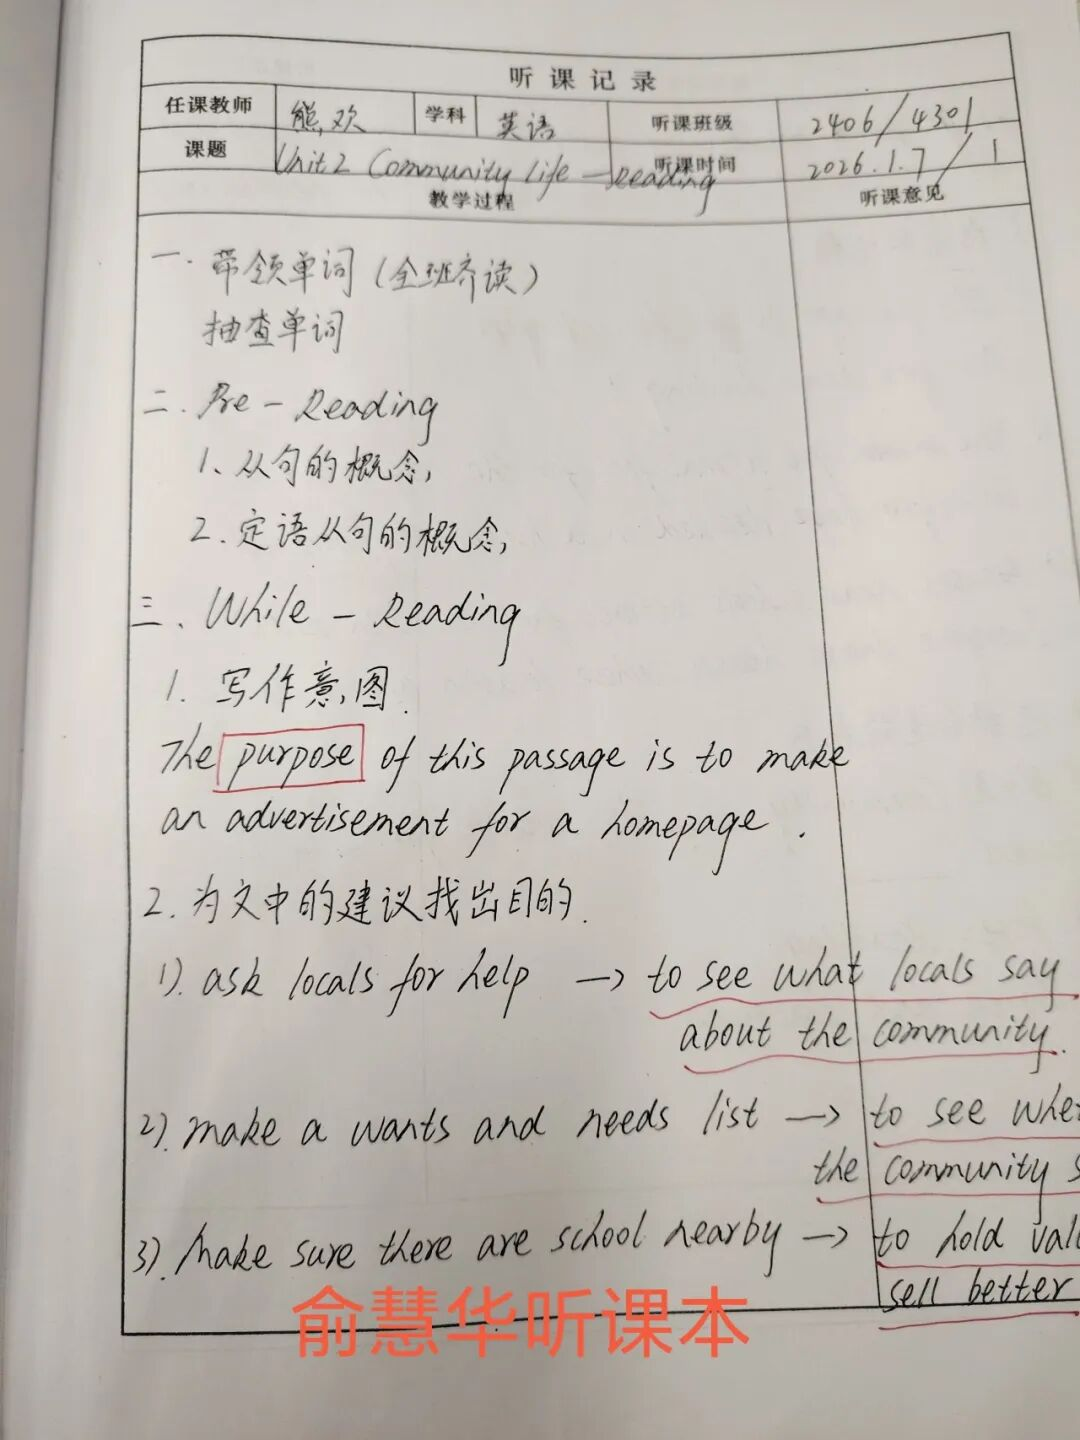 听课记录
任课教师 熊欢 学科 英语 听课班级 2406/4301
课题 Unit 2 Community Life — Reading 听课时间 2026.1.7/1
教学过程 听课意见
一. 带领单词（全班齐读）
抽查单词
二. Pre - Reading
1、从句的概念,
2. 定语从句的概念,
三、While - Reading
1. 写作意图.
The purpose of this passage is to make
an advertisement for a homepage.
2. 为文中的建议找出目的.
1). ask locals for help → to see what locals say
about the community.
2). make a wants and needs list → to see
the community
3). Make sure there are school nearby → to hold
sell better
俞慧华听课本